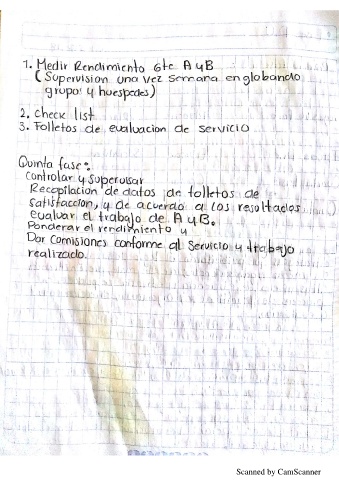 1. Medir Rendimiento Gte A y B
(Supervision una vez semana englobando
grupos y huespedes)
2. check list
3. Folletos de evaluacion de servicio
Quinta fase:
Controlar y supervisar
Recopilacion de datos de folletos de
satisfaccion, y de acuerdo a los resultados
evaluar el trabajo de A y B.
Ponderar el rendimiento y
Dar Comisiones conforme al servicio y trabajo
realizado.
Scanned by CamScanner